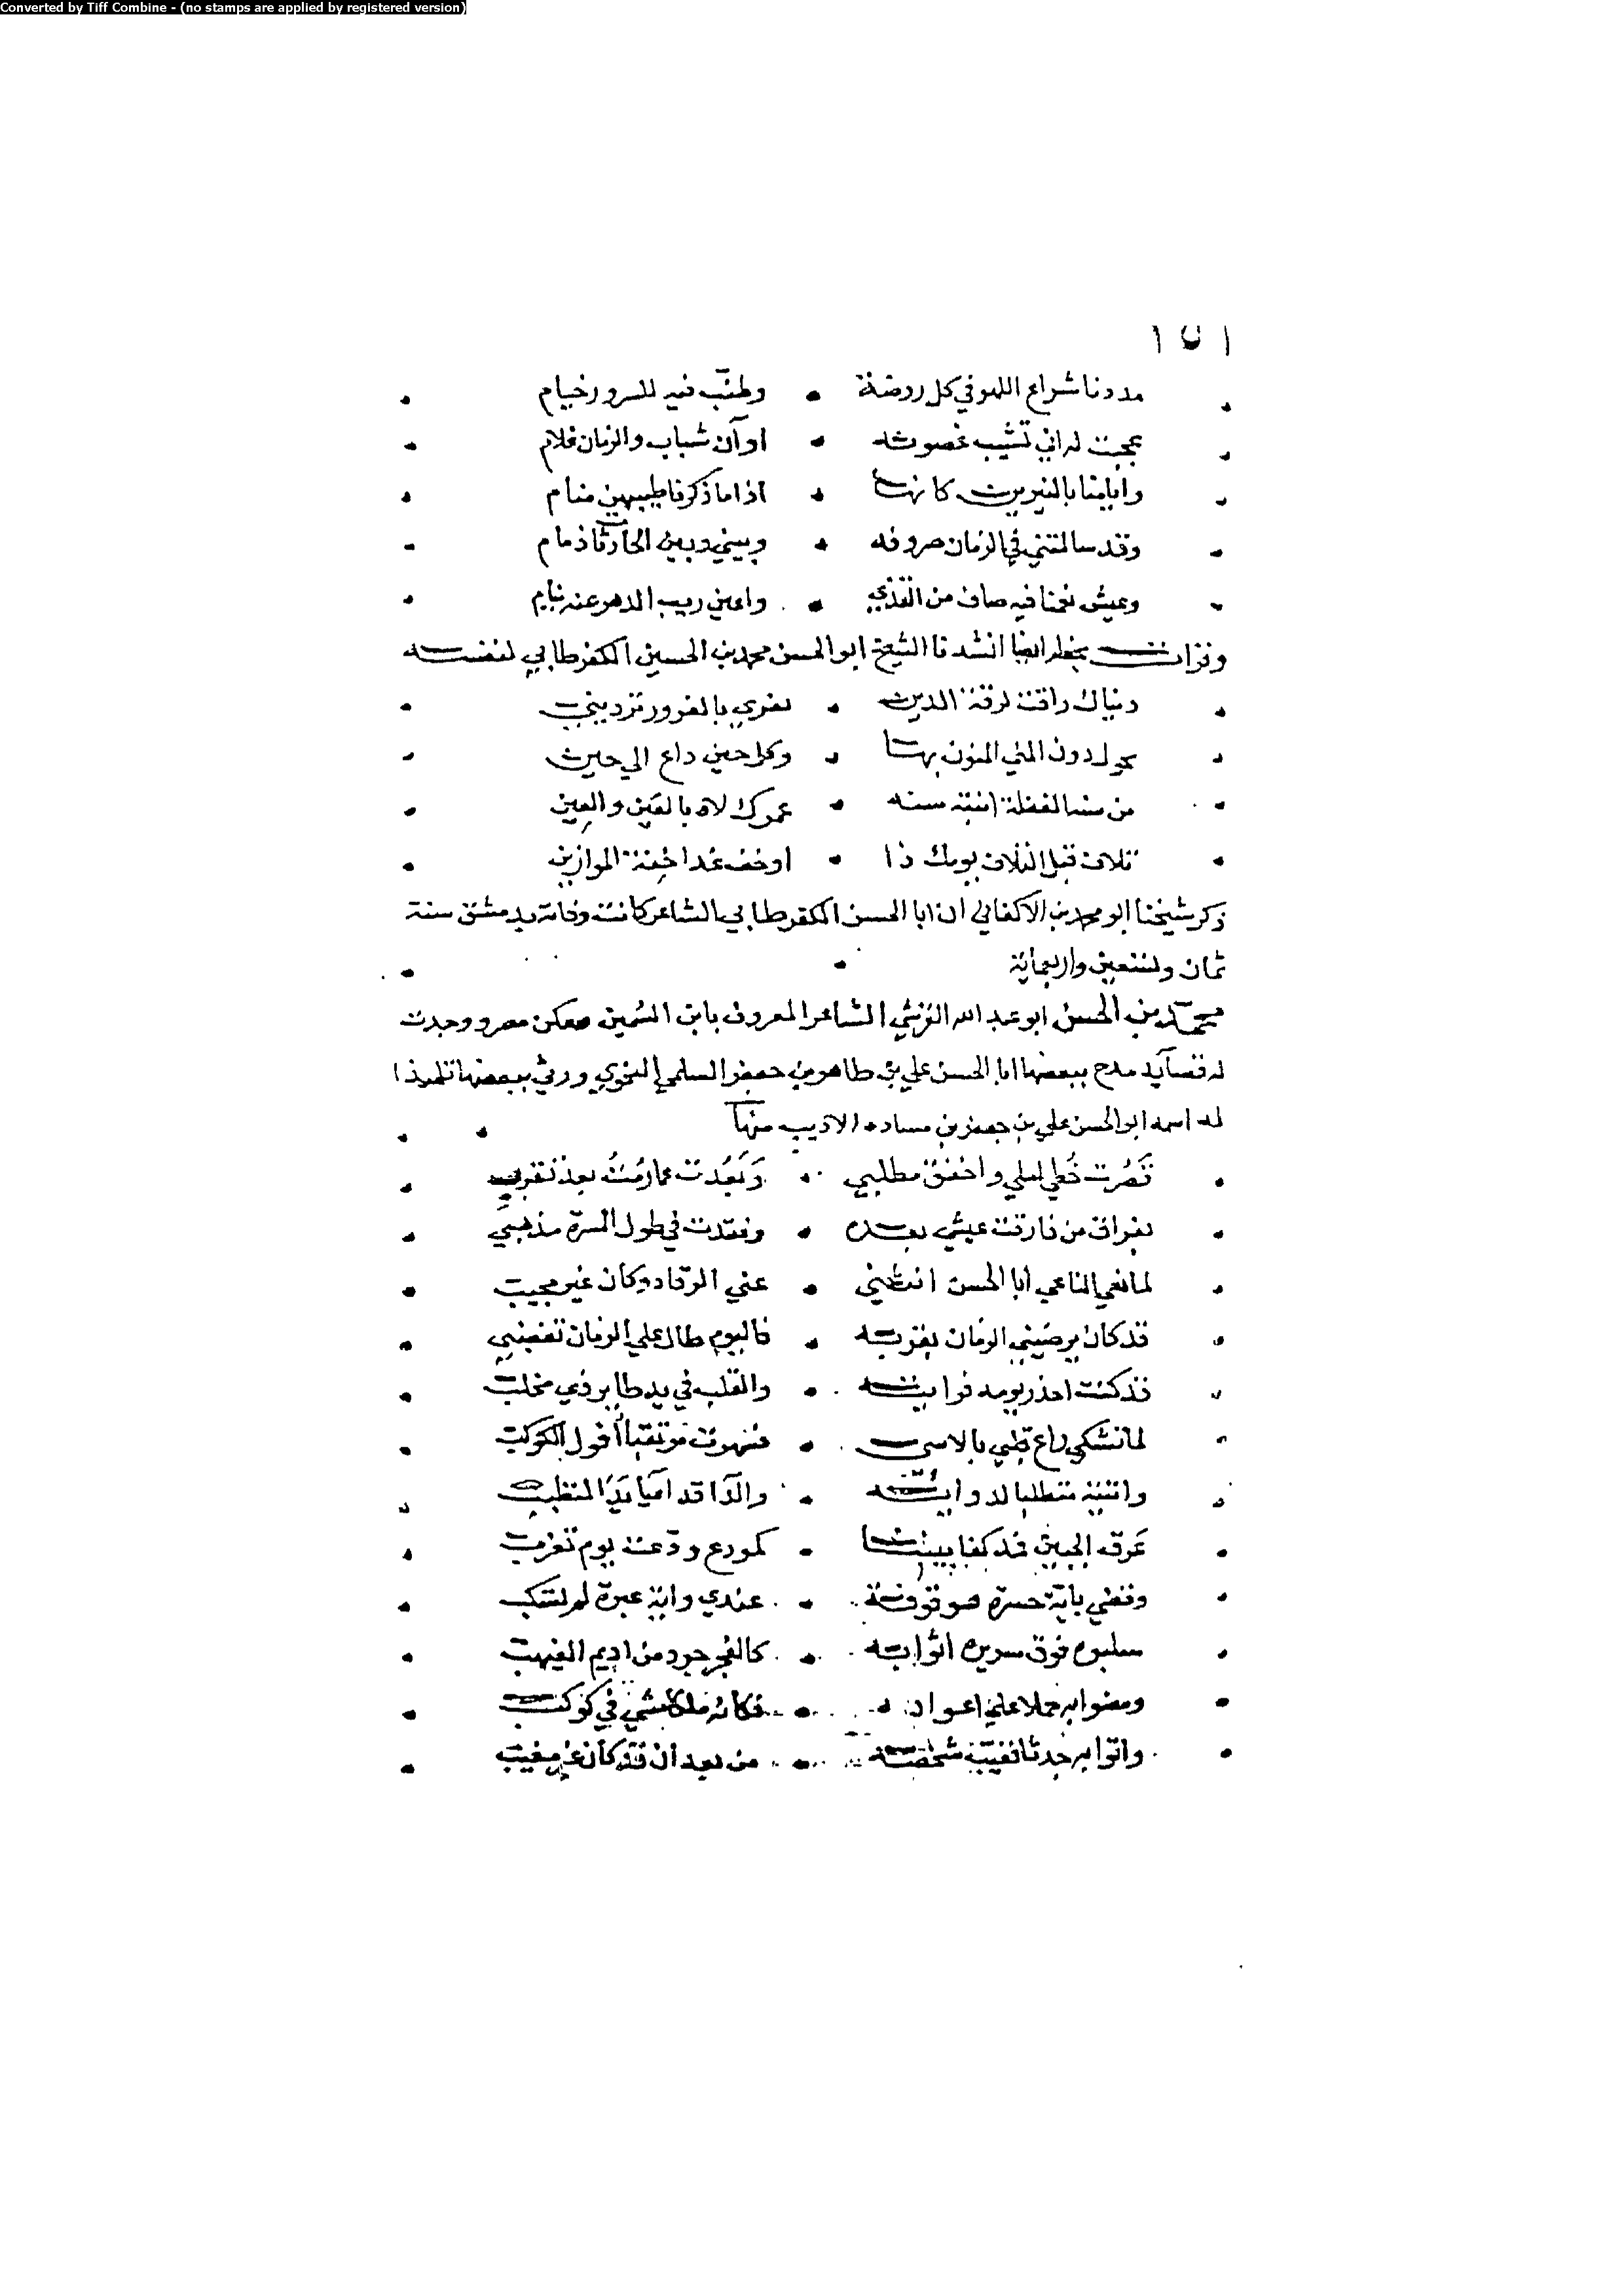 Converted by Tiff Combine - (no stamps are applied by registered version)
١٥١
مددنا شراع اللهو في كل روضة • وطنّب فيه للسرور خيام
عجبت له اني تشيب غصونه • اوآن شباب والزمان غلام
وايامنا بالنيربين كانها • اذا ما ذكرنا طيبهن منام
وقد سالمتني في الزمان صروفه • وبيني وبين الحادثات ذمام
وعيش نعمنا فيه صاف من القذي • واعين ريب الدهر عنه نيام
وقرات بخطه ايضا انشدنا الشيخ ابو الحسن محمد بن الحسين الكفرطابي لنفسه
دنياك راقت لرقة الدين • تغري بالغرور تردين
يحول دون المني المنون بها • وكل حين داع الي حين
من سنه الغفلة انتبه سنه • عمرك لاه بالعَين والعِين
تلاف قبل التلاف يومك ذا • او خف غدا خفة الموازين
ذكر شيخنا ابو محمد بن الاكفاني ان ابا الحسن الكفرطابي الشاعر كانت وفاته بدمشق سنة
ثمان وتسعين واربعمائة
محمد بن الحسن ابو عبد الله القرشي الشاعر المعروف بابن السمين سكن مصر ووجدت
له قصآيد مدح ببعضها ابا الحسن علي بن طاهر بن جعفر السلمي النحوي ورثي ببعضها تلميذا
له اسمه ابو الحسن علي بن جعفر بن مساده الاديب منها
قَصُرت خُطي املي واخفق مطلبي • وَبَعُدت عما رُمتُ بعد تقرب
بفراق من فارقت عيشي بعده • وفقدت في طول المسرة مذهبي
لما نعي الناعي ابا الحسن انثني • عني الرقاد وكان غير مجيب
قد كان يرضيني الزمان بقربه • فاليوم طال علي الزمان تغضبي
قد كنت احذر يومه فرايته • والقلب في يد طاير ذي مخلب
لما تشكي راع قلبي بالاسي • فسهرت مرتقبا أفول الكوكب
واتيته متطلبا لدوائه • والدآ قد اعيا يدَ المتطبب
عرق الجبين قد كفا ببنانه • كمودع ودعته يوم تغرب
وقضي باية حسرة موقوفة • عندي واية عبرة لم تسكب
سلبوه فوق سريره اثوابه • كالفجر جرد من اديم الغيهب
ومضوا به حملا علي اعواده • فكانه ملك مشي في كوكب
واتوا به جدثا تغيب شخصه • من بعد ان قد كان غير مغيب